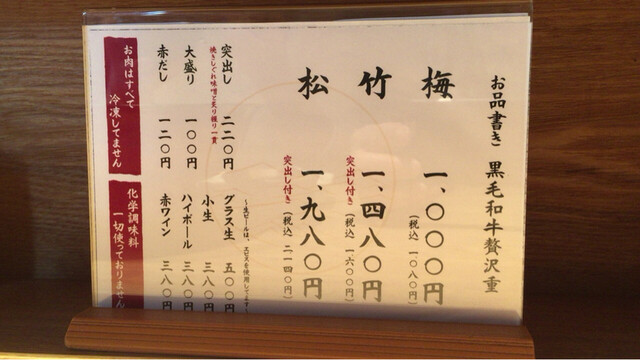 お品書き 黒毛和牛贅沢重
梅 一、〇〇〇円
(税込 一〇八〇円)
竹 一、四八〇円
突出し付き (税込 一六〇〇円)
松 一、九八〇円
突出し付き (税込 二一四〇円)
突出し 二二〇円
挽きしぐれ味噌と炙り握り一貫
大盛り 一〇〇円
赤だし 一二〇円
〜生ビールは、エビスを使用してます〜
グラス生 五〇〇円
小生 三八〇円
ハイボール 三八〇円
赤ワイン 三八〇円
お肉はすべて
冷凍してません
化学調味料
一切使っておりません